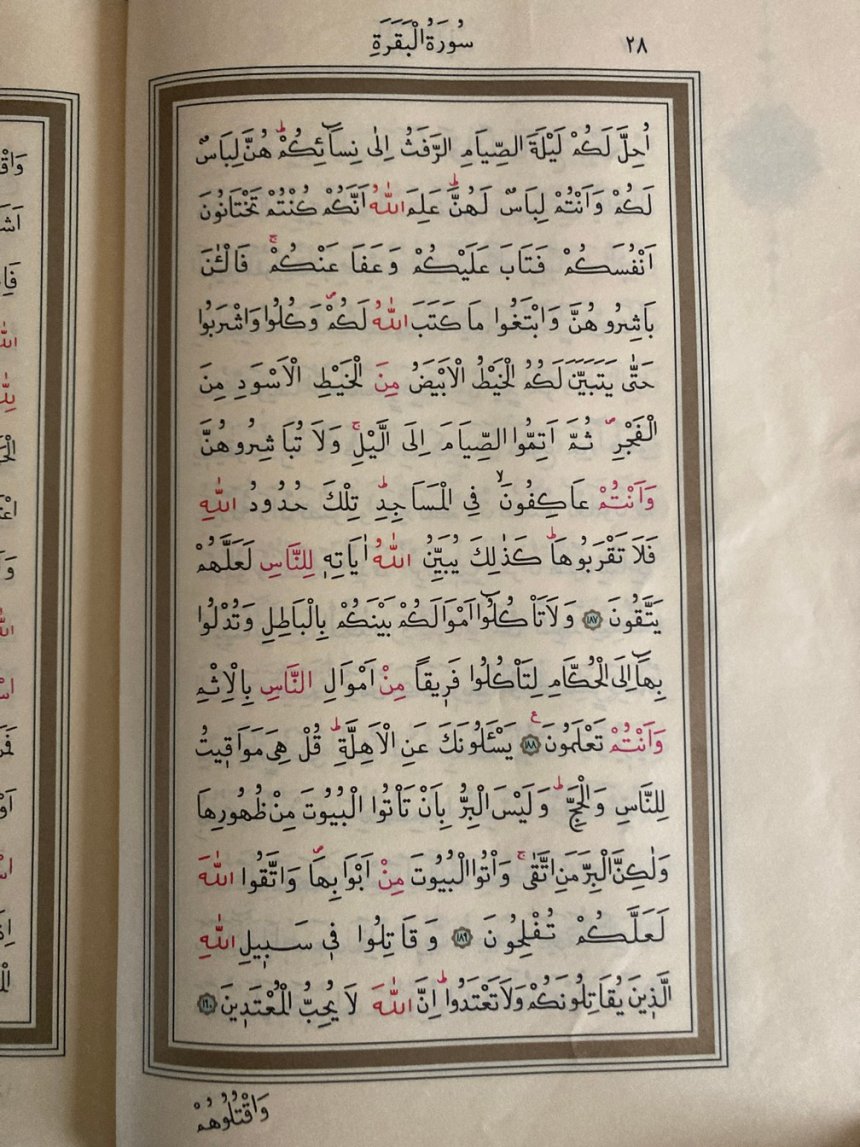 سُورَةُ الْبَقَرَةِ ٢٨
اُحِلَّ لَكُمْ لَيْلَةَ الصِّيَامِ الرَّفَثُ اِلٰى نِسَٓائِكُمْۜ هُنَّ لِبَاسٌ
لَكُمْ وَاَنْتُمْ لِبَاسٌ لَهُنَّۜ عَلِمَ اللّٰهُ اَنَّكُمْ كُنْتُمْ تَخْتَانُونَ
اَنْفُسَكُمْ فَتَابَ عَلَيْكُمْ وَعَفَا عَنْكُمْۚ فَالْـٰٔنَ
بَاشِرُوهُنَّ وَابْتَغُوا مَا كَتَبَ اللّٰهُ لَكُمْۖ وَكُلُوا وَاشْرَبُوا
حَتّٰى يَتَبَيَّنَ لَكُمُ الْخَيْطُ الْاَبْيَضُ مِنَ الْخَيْطِ الْاَسْوَدِ مِنَ
الْفَجْرِۖ ثُمَّ اَتِمُّوا الصِّيَامَ اِلَى الَّيْلِۚ وَلَا تُبَاشِرُوهُنَّ
وَاَنْتُمْ عَاكِفُونَۙ فِي الْمَسَاجِدِۜ تِلْكَ حُدُودُ اللّٰهِ
فَلَا تَقْرَبُوهَاۜ كَذٰلِكَ يُبَيِّنُ اللّٰهُ اٰيَاتِه۪ لِلنَّاسِ لَعَلَّهُمْ
يَتَّقُونَ ١٨٧ وَلَا تَأْكُلُٓوا اَمْوَالَكُمْ بَيْنَكُمْ بِالْبَاطِلِ وَتُدْلُوا
بِهَٓا اِلَى الْحُكَّامِ لِتَأْكُلُوا فَر۪يقًا مِنْ اَمْوَالِ النَّاسِ بِالْاِثْمِ
وَاَنْتُمْ تَعْلَمُونَ ١٨٨ ع يَسْـَٔلُونَكَ عَنِ الْاَهِلَّةِۜ قُلْ هِيَ مَوَاق۪يتُ
لِلنَّاسِ وَالْحَجِّۜ وَلَيْسَ الْبِرُّ بِاَنْ تَأْتُوا الْبُيُوتَ مِنْ ظُهُورِهَا
وَلٰكِنَّ الْبِرَّ مَنِ اتَّقٰىۚ وَأْتُوا الْبُيُوتَ مِنْ اَبْوَابِهَاۖ وَاتَّقُوا اللّٰهَ
لَعَلَّكُمْ تُفْلِحُونَ ١٨٩ وَقَاتِلُوا ف۪ي سَب۪يلِ اللّٰهِ
الَّذ۪ينَ يُقَاتِلُونَكُمْ وَلَا تَعْتَدُواۜ اِنَّ اللّٰهَ لَا يُحِبُّ الْمُعْتَد۪ينَ ١٩٠
وَاقْتُلُوهُمْ